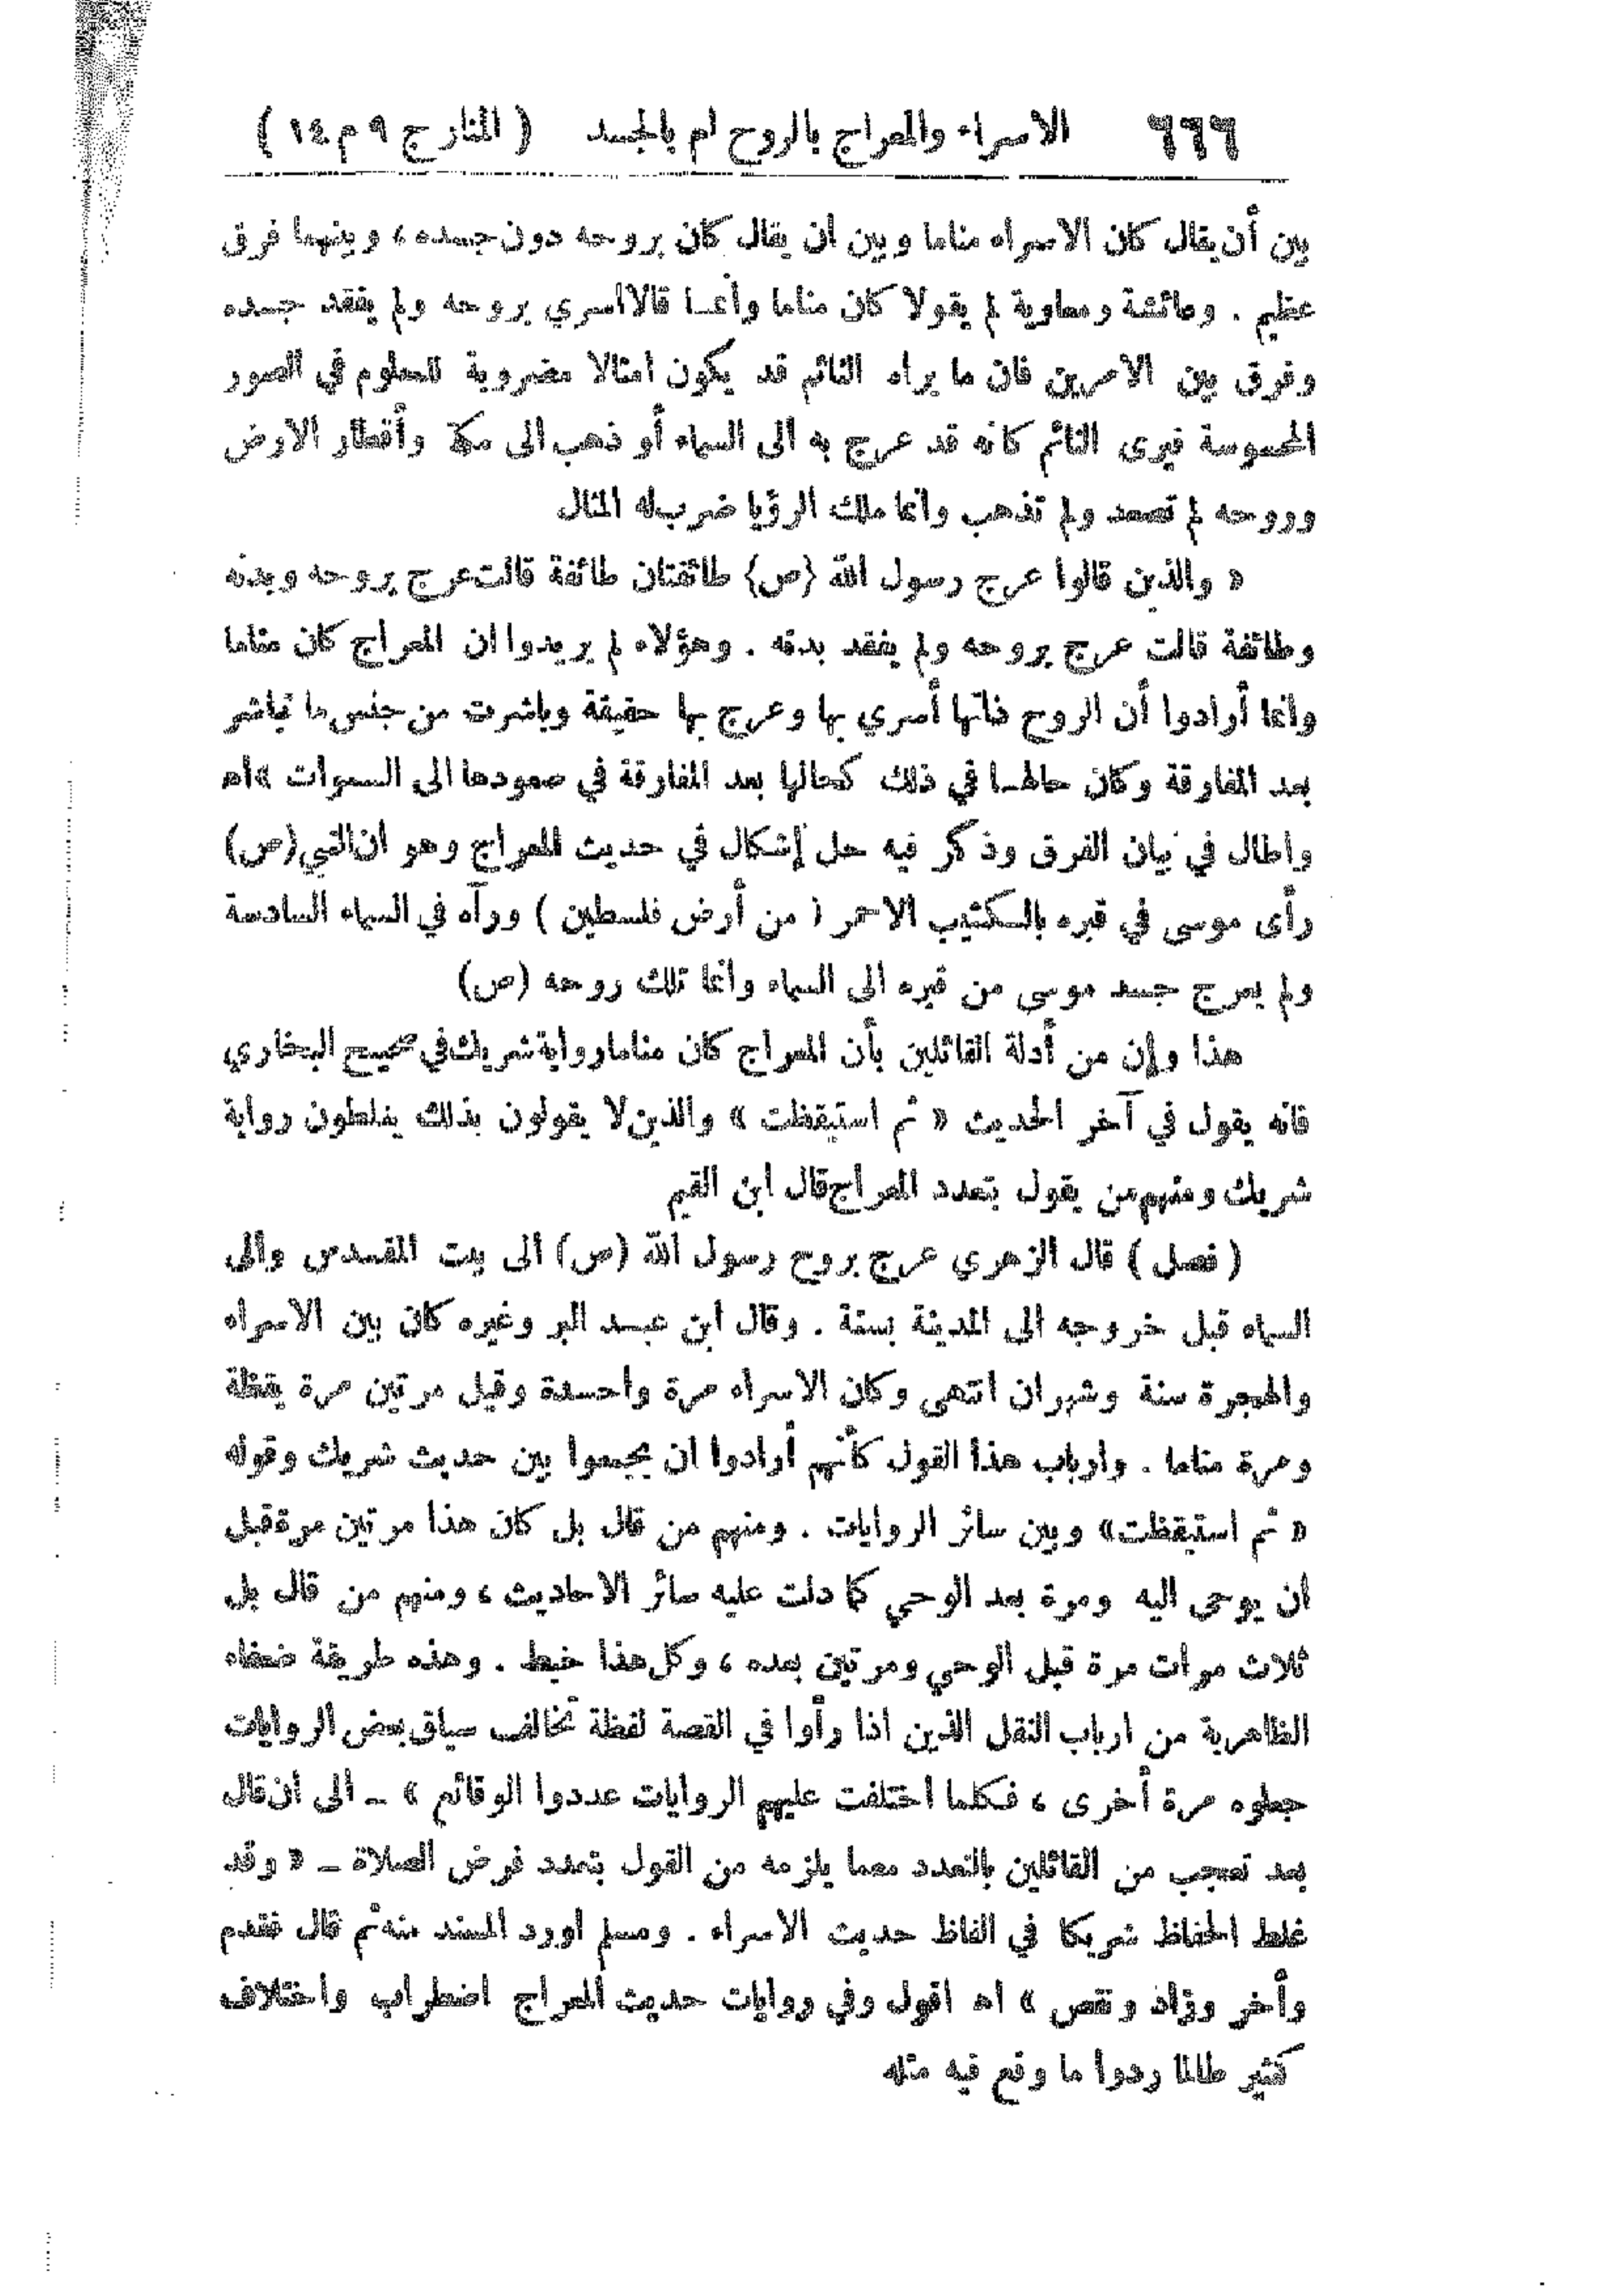 ٦٦٦ الاسراء والمعراج بالروح ام بالجسد ( المنار ج ٩ م ١٤ )
بين أن يقال كان الاسراء مناما وبين ان يقال كان بروحه دون جسده ، وبينهما فرق
عظيم . وعائشة ومعاوية لم يقولا كان مناما وانما قالا اسري بروحه ولم يفقد جسده
وفرق بين الامرين فان ما يراه النائم قد يكون امثالا مضروبة للمعلوم في الصور
المحسوسة فيرى النائم كانه قد عرج به الى السماء أو ذهب الى مكة وأقطار الارض
وروحه لم تصعد ولم تذهب وانما ملك الرؤيا ضرب له المثال
« والذين قالوا عرج رسول الله (ص) طائفتان طائفة قالت عرج بروحه وبدنه
وطائفة قالت عرج بروحه ولم يفقد بدنه . وهؤلاء لم يريدوا ان المعراج كان مناما
وانما أرادوا أن الروح ذاتها أسري بها وعرج بها حقيقة وباشرت من جنس ما تباشر
بعد المفارقة وكان حالهـا في ذلك كحالها بعد المفارقة في صعودها الى السموات » اهـ
واطال في بيان الفرق وذكر فيه حل إشكال في حديث المعراج وهو ان النبي (ص)
رأى موسى في قبره بالكثيب الاحمر ( من أرض فلسطين ) ورآه في السماء السادسة
ولم يعرج جسد موسى من قبره الى السماء وانما تلك روحه (ص)
هذا وإن من أدلة القائلين بأن المعراج كان مناما رواية شريك في صحيح البخاري
فانه يقول في آخر الحديث « ثم استيقظت » والذين لا يقولون بذلك يغلطون رواية
شريك ومنهم من يقول بتعدد المعراج قال ابن القيم
( فصل ) قال الزهري عرج بروح رسول الله (ص) الى بيت المقدس والى
السماء قبل خروجه الى المدينة بسنة . وقال ابن عبد البر وغيره كان بين الاسراء
والهجرة سنة وشهران انتهى وكان الاسراء مرة واحدة وقيل مرتين مرة يقظة
ومرة مناما . وارباب هذا القول كأنهم أرادوا ان يجمعوا بين حديث شريك وقوله
« ثم استيقظت» وبين سائر الروايات . ومنهم من قال بل كان هذا مرتين مرة قبل
ان يوحى اليه ومرة بعد الوحي كما دلت عليه سائر الاحاديث ، ومنهم من قال بل
ثلاث مرات مرة قبل الوحي ومرتين بعده ، وكل هذا خبط . وهذه طريقة ضعفاء
الظاهرية من ارباب النقل الذين اذا رأوا في القصة لفظة تخالف سياق بعض الروايات
جعلوه مرة أخرى ، فكلما اختلفت عليهم الروايات عددوا الوقائع » ـ الى ان قال
بعد تعجب من القائلين بالتعدد معما يلزمه من القول بتعدد فرض الصلاة ـ « وقد
غلط الحفاظ شريكا في الفاظ حديث الاسراء . ومسلم اورد المسند منه ثم قال فقدم
وأخر وزاد ونقص » اهـ اقول وفي روايات حديث المعراج اضطراب واختلاف
كثير طالما ردوا ما وقع فيه مثله